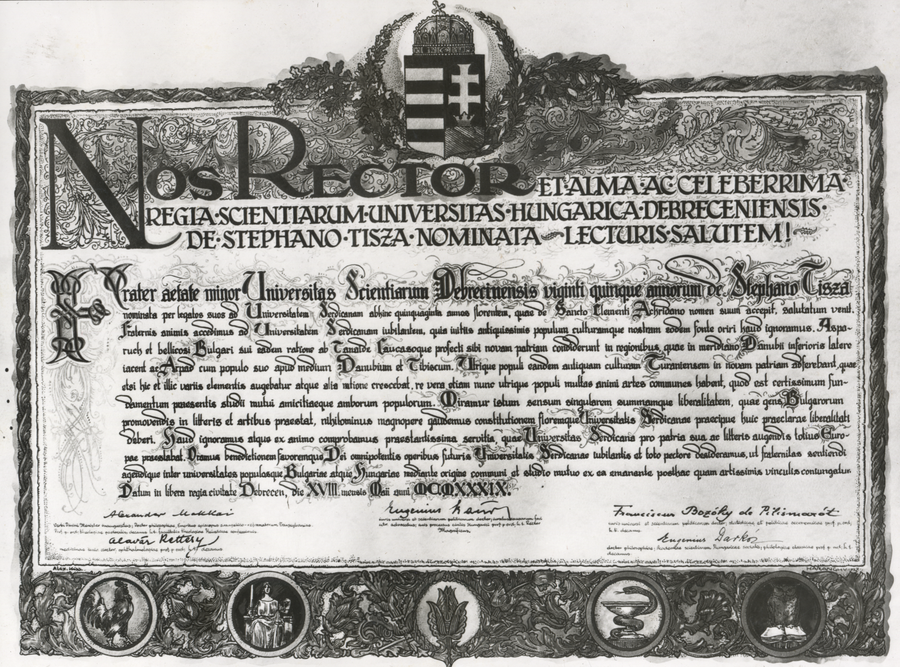 NOS RECTOR ET·ALMA·AC CELEBERRIMA·
REGIA·SCIENTIARUM·UNIVERSITAS·HUNGARICA·DEBRECENIENSIS·
DE·STEPHANO·TISZA·NOMINATA LECTURIS·SALUTEM!
Frater aetate minor Universitas Scientiarum Debrecinensis viginti quinque annorum de Stephano Tisza
nominata per legatos suos ad Universitatem Serdicanam abhinc quinquaginta annos florentem, quae de Sancto Clementi Achridano nomen suum accepit, salutatum venit.
Fraternis animis accedimus ad Universitatem Serdicanam iubilantem, quia initiis antiquissimis populum culturamque nostram eodem fonte oriri haud ignoramus. Aspa-
ruch et bellicosi Bulgari sui eadem ratione ab Tanaide Caucasoque profecti sibi novam patriam condiderunt in regionibus, quae in meridiano Danubii inferioris latere
iacent ac Arpad cum populo suo apud medium Danubium et Tibiscum. Utrique populi eandem antiquam culturam Turaniensem in novam patriam adferebant, quae
etsi hic et illic variis elementis augebatur atque aliis ratione crescebat, re vera etiam nunc utrique populi multas animi artes communes habent, quod est certissimum fun-
damentum praesentis studii mutui amicitiaeque amborum populorum. Miramur istum sensum singularem summamque liberalitatem, quae gens Bulgarorum
promovendis in litteris et artibus praestat, nihilominus magnopere gaudemus constitutionem floremque Universitatis Serdicanae praecipue huic praeclarae liberalitati
deberi. Haud ignoramus atque ex animo comprobamus praestantissima servitia, quae Universitas Serdicana pro patria sua ac litteris augendis totius Euro-
pae praestabat. Oramus benedictionem favoremque Dei omnipotentis operibus futuris Universitatis Serdicanae iubilantis et toto pectore desideramus, ut fraternitas sentiendi
agendique inter universitates populosque Bulgariae atque Hungariae mediante origine communi et studio mutuo ex ea emanante posthac quam artissimis vinculis coniungatur.
Datum in libera regia civitate Debrecen, die XVIII. mensis Maii anni MCMXXXIX.
Alexander Makkai
Eugenius
Franciscus Bozóky de
Eugenius Darkó